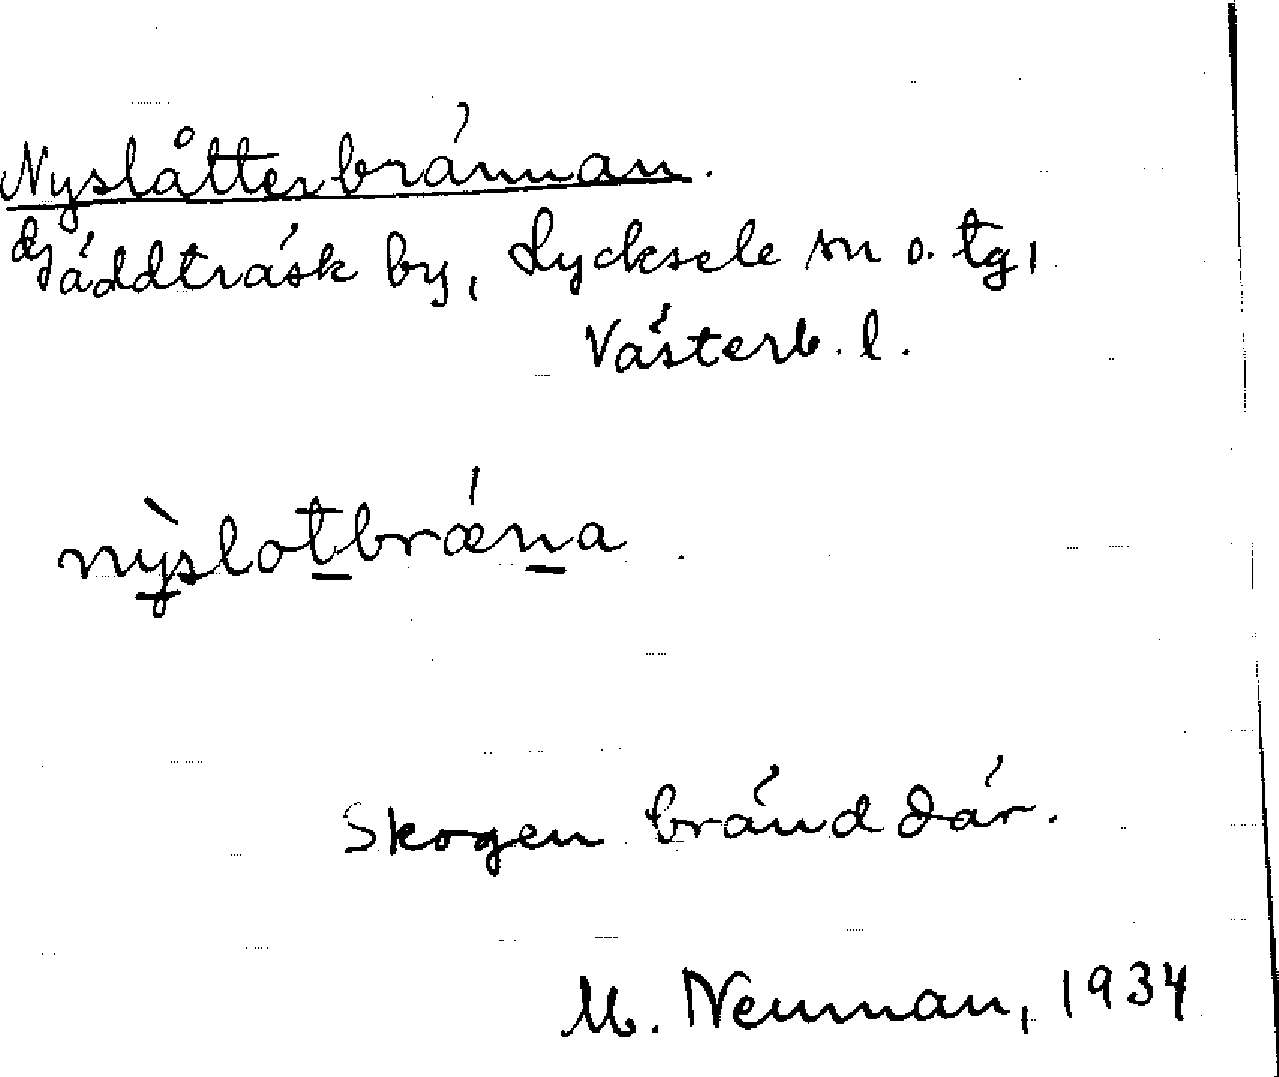 Nyslåtterbrännan.
Gäddträsk by, Lycksele sn o. tg,
Västerb. l.
nỳslot̲brǽn̲a.
Skogen bränd där.
M. Neuman, 1934